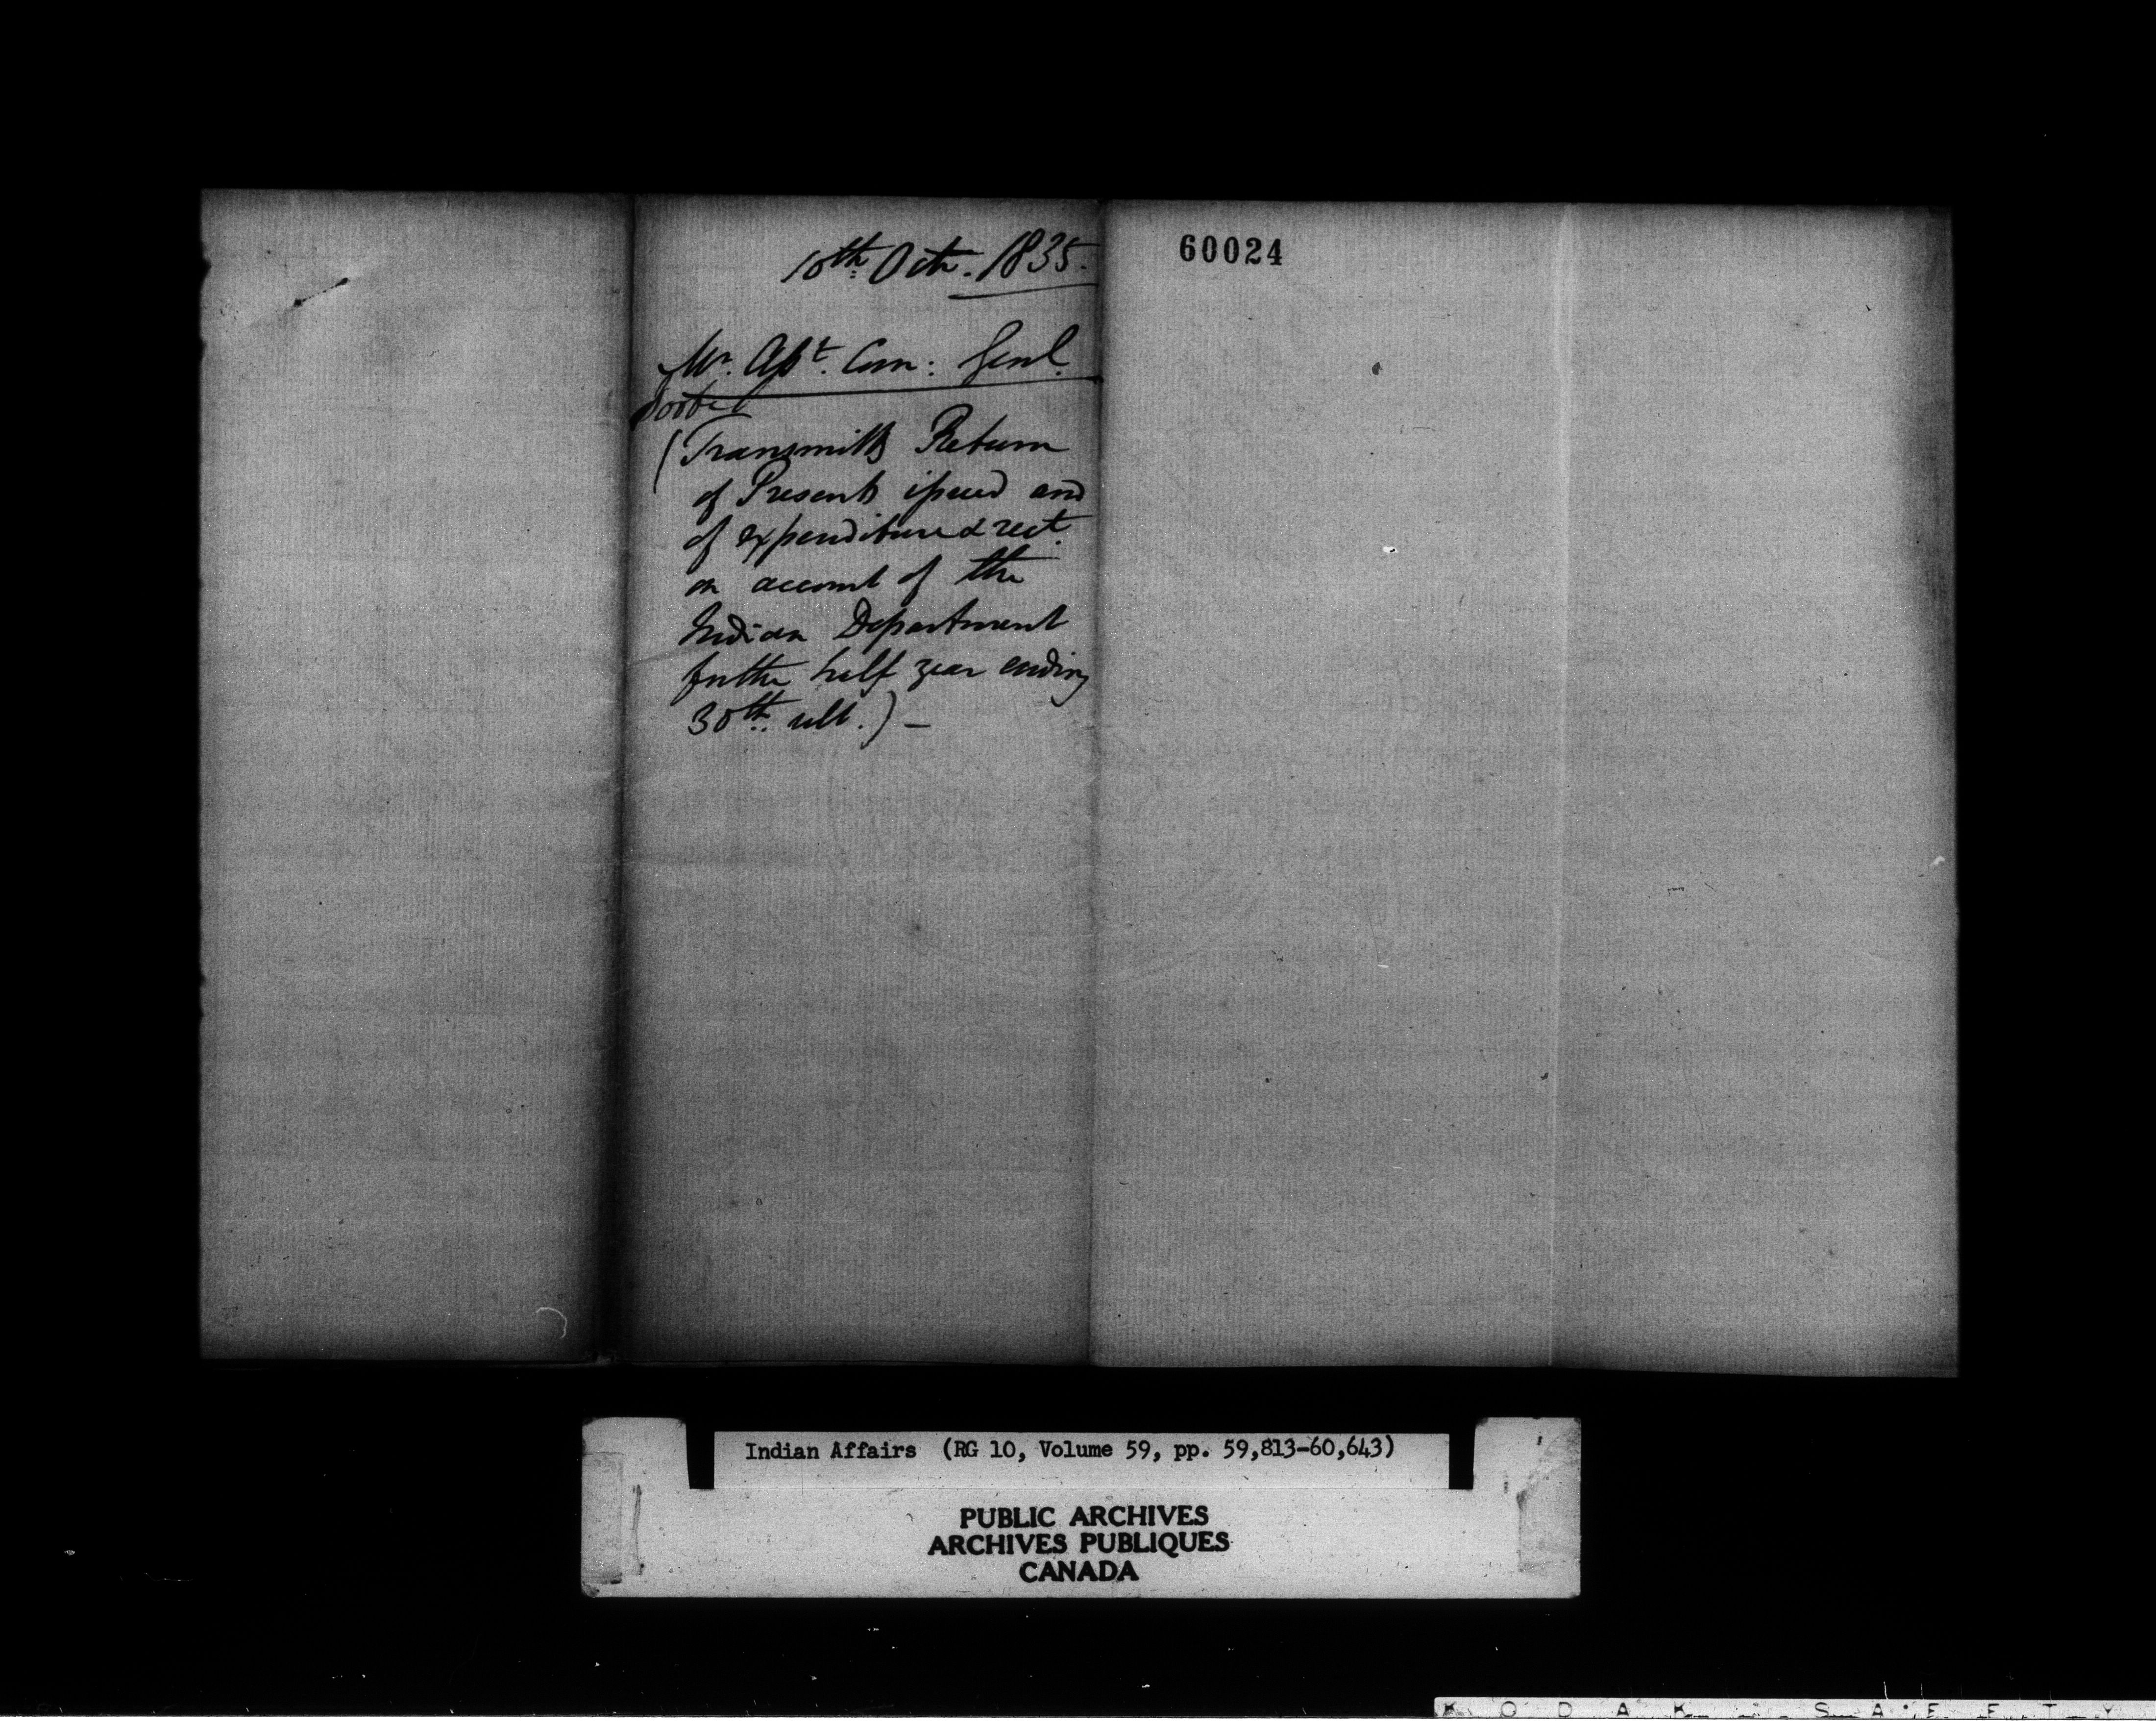 10th Octr. 1835.
60024
Mr. Asst. Com: Genl.
(Transmitts Return
of Presents issued and
of expenditure & rect.
on account of the
Indian Department
for the half year ending
30th ult.) –
Indian Affairs (RG 10, Volume 59, pp. 59,813-60,643)
PUBLIC ARCHIVES
ARCHIVES PUBLIQUES
CANADA
KODAK SAFETY